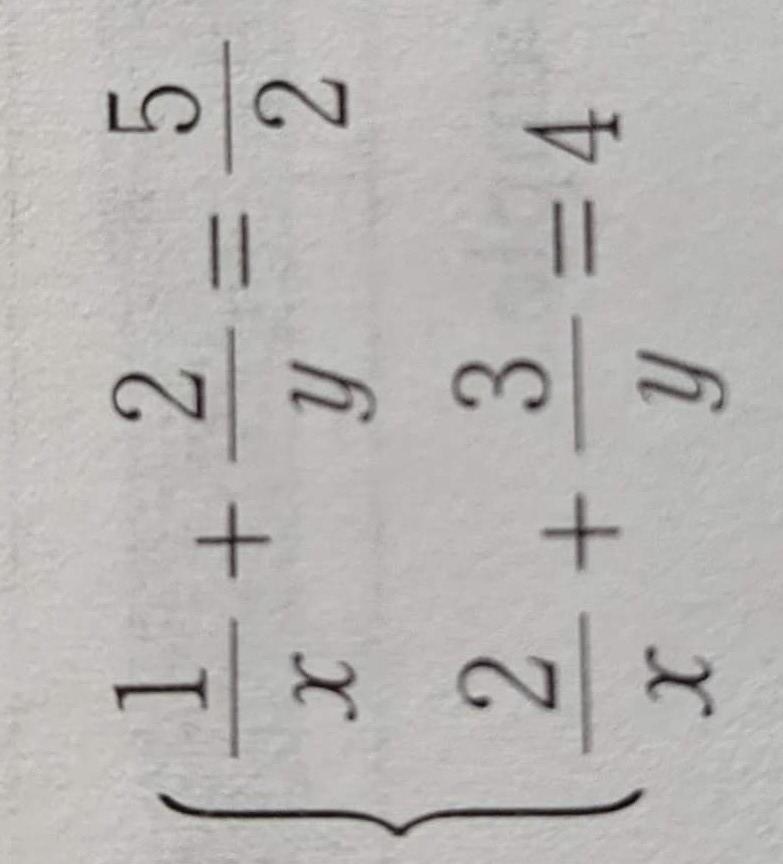 1/x + 2/y = 5/2
2/x + 3/y = 4